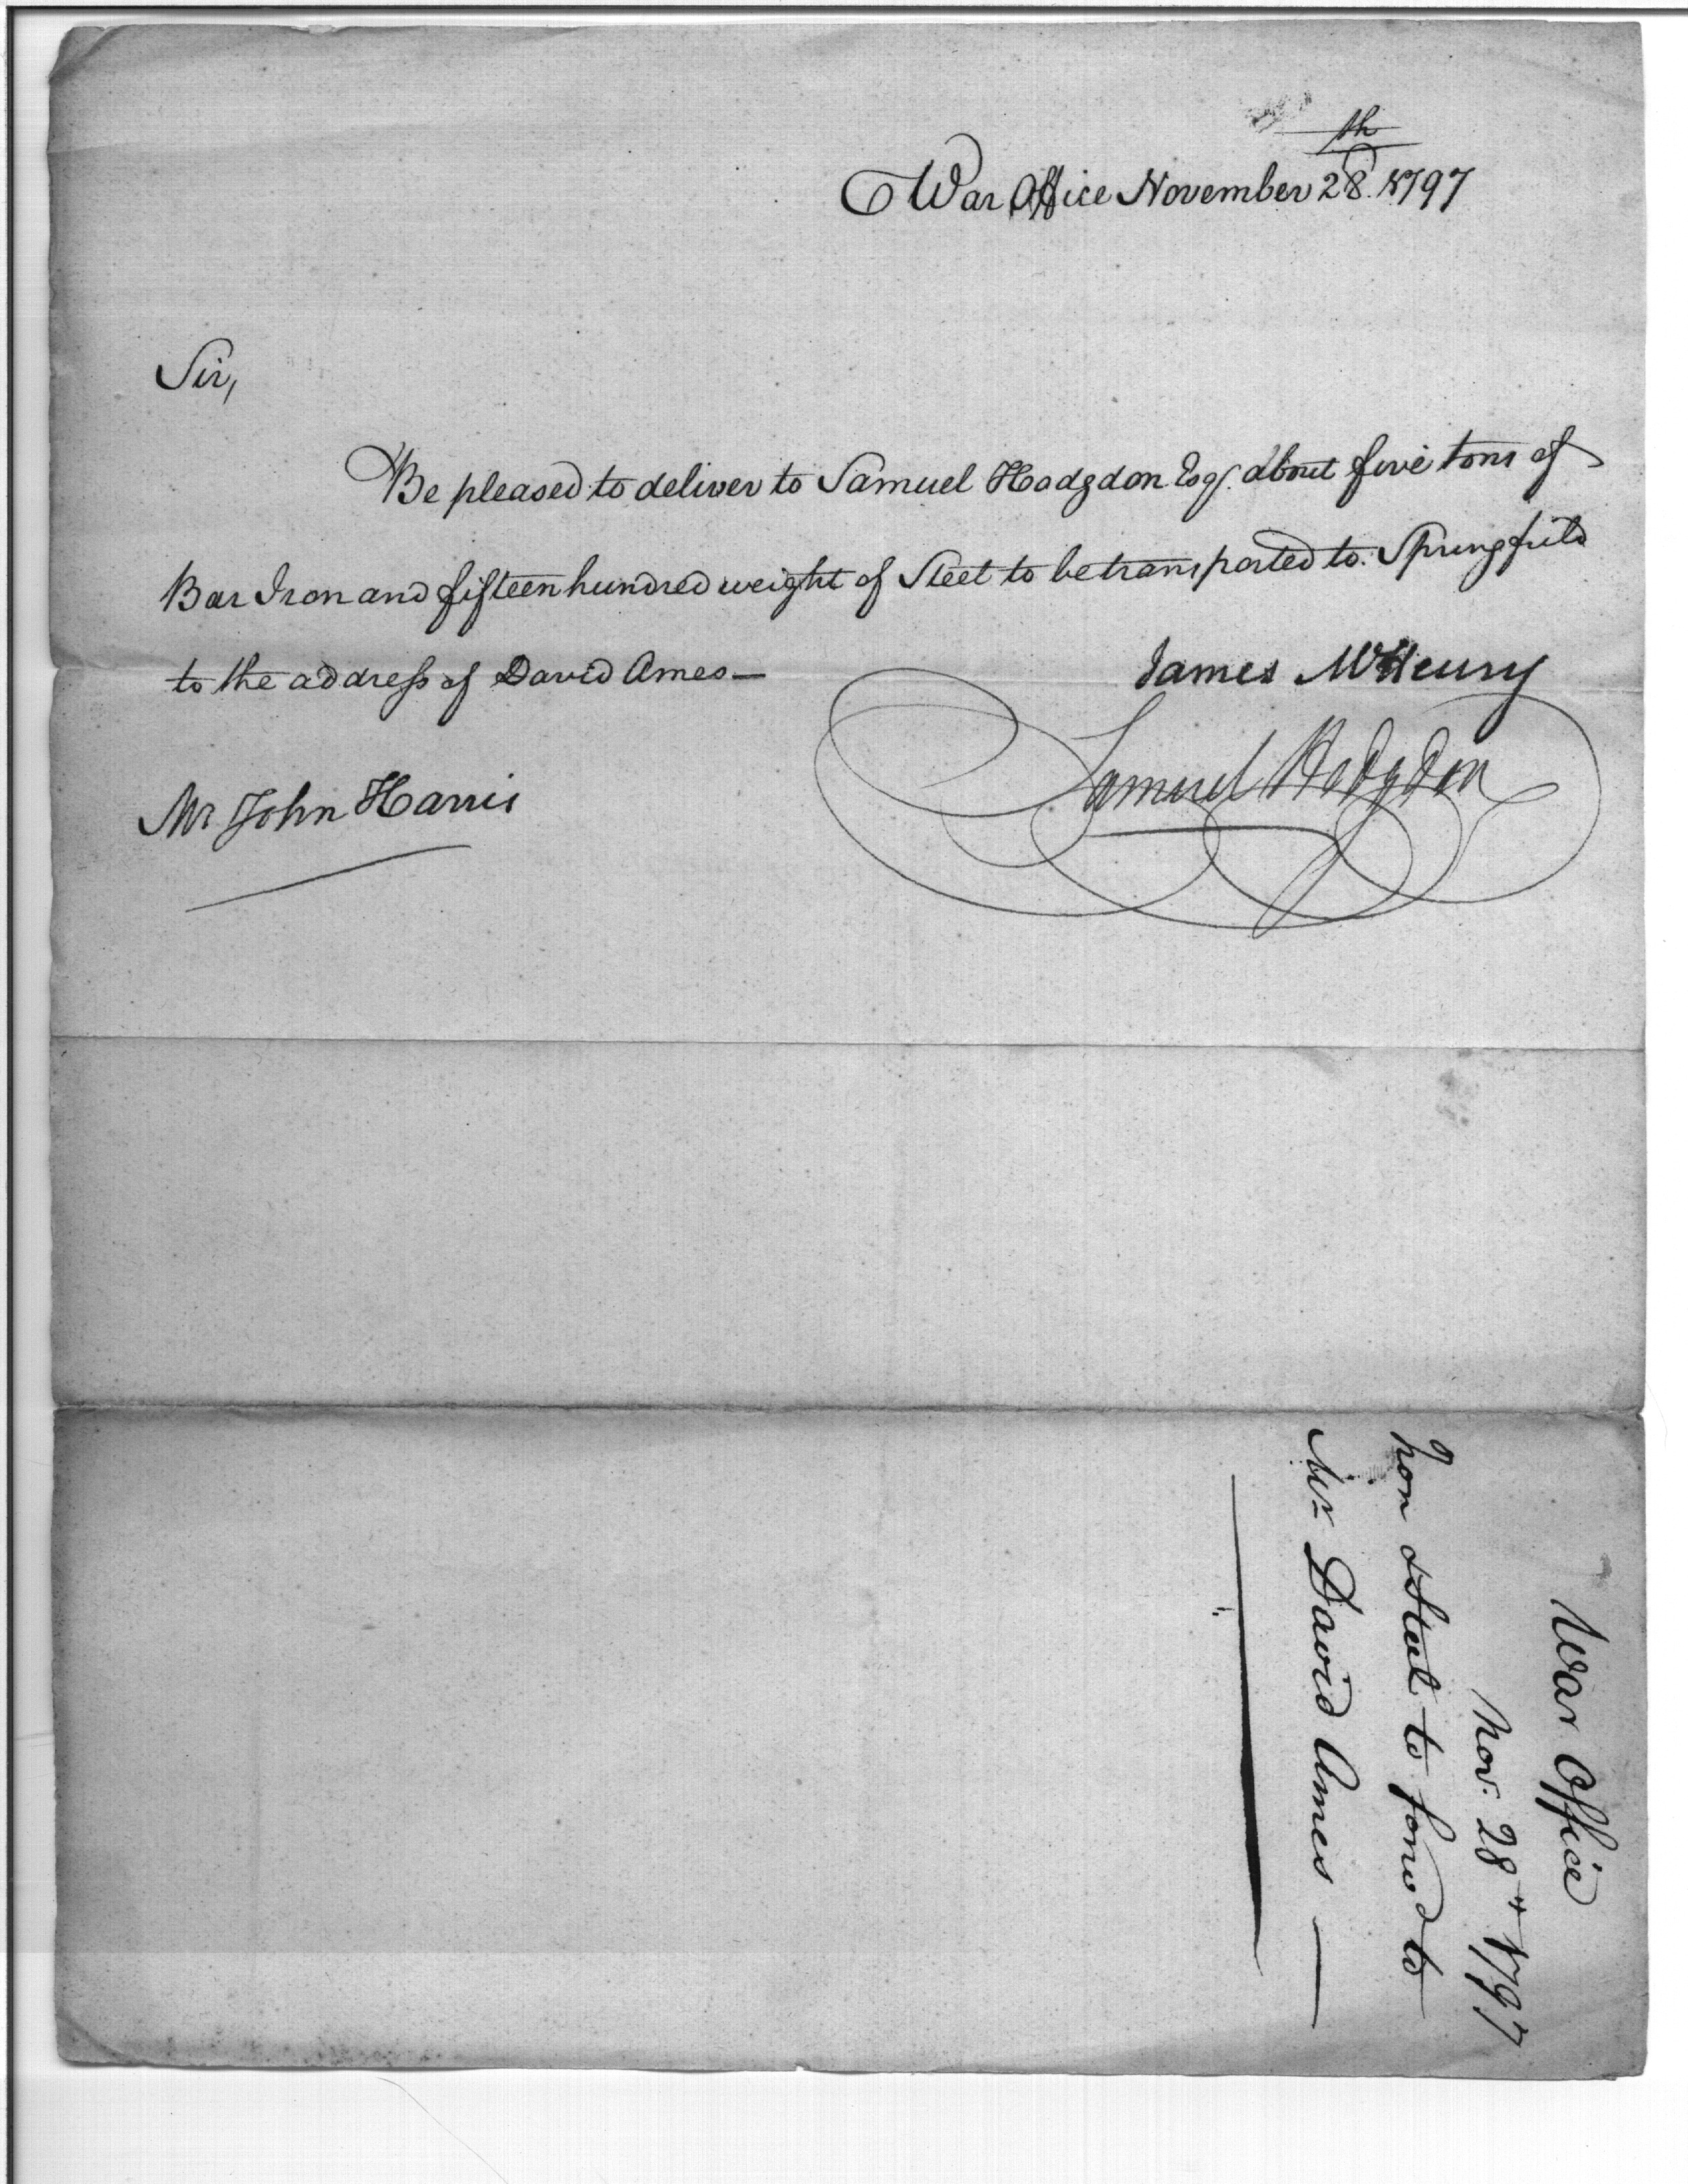 War Office November 28th 1797
Sir,
Be pleased to deliver to Samuel Hodgdon Esqr. about five tons of
Bar Iron and fifteen hundred weight of Steel to be transported to Springfield
to the address of David Ames—
James McHenry
Samuel Hodgdon
Mr John Harris
War Office
Nov: 28th 1797
Iron & Steel to forwd to
Mr David Ames —